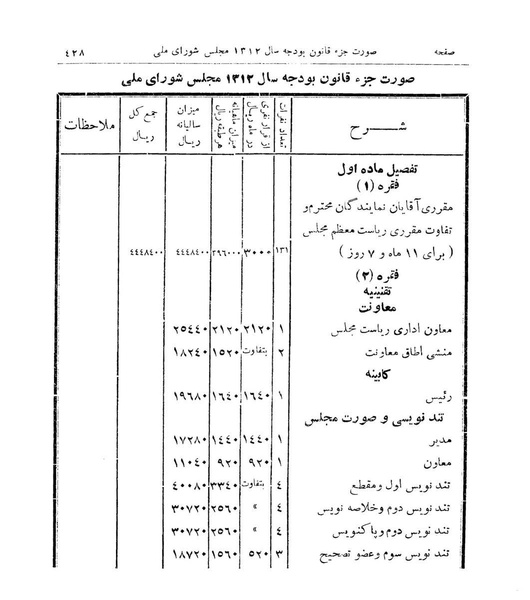 صفحه صورت جزء قانون بودجه سال ۱۳۱۲ مجلس شورای ملی ٤٢٨
صورت جزء قانون بودجه سال ۱۳۱۲ مجلس شورای ملی
شرح تعداد نفرات از قرار نفری در ماه ریال میزان ماهیانه هر طبقه ریال میزان سالیانه ریال جمع کل ریال ملاحظات
تفصیل ماده اول
فقره (۱)
مقرری آقایان نمایندگان محترم و
تفاوت مقرری ریاست معظم مجلس
( برای ۱۱ ماه و ۷ روز ) ۱۳۱ ۳۰۰۰ ۳۹٦۰۰۰ ٤٤٤٨٤۰۰ ٤٤٤٨٤۰۰
فقره (۲)
تقنینیه
معاونت
معاون اداری ریاست مجلس ۱ ۲۱۲۰ ۲۱۲۰ ۲٥٤٤۰
منشی اطاق معاونت ۲ بتفاوت ۱٥۲۰ ۱۸۲٤۰
کابینه
رئیس ۱ ۱٦٤۰ ۱٦٤۰ ۱۹٦۸۰
تند نویسی و صورت مجلس
مدیر ۱ ۱٤٤۰ ۱٤٤۰ ۱۷۲۸۰
معاون ۱ ۹۲۰ ۹۲۰ ۱۱۰٤۰
تند نویس اول ومقطع ٤ بتفاوت ۳۳٤۰ ٤۰۰۸۰
تند نویس دوم وخلاصه نویس ٤ » ۲٥٦۰ ۳۰۷۲۰
تند نویس دوم وپاکنویس ٤ » ۲٥٦۰ ۳۰۷۲۰
تند نویس سوم وعضو تصحیح ۳ ٥۲۰ ۱٥٦۰ ۱۸۷۲۰